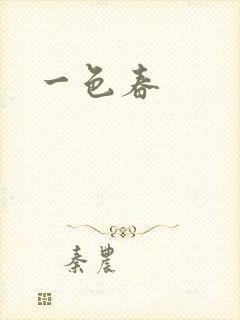 一色春
秦農